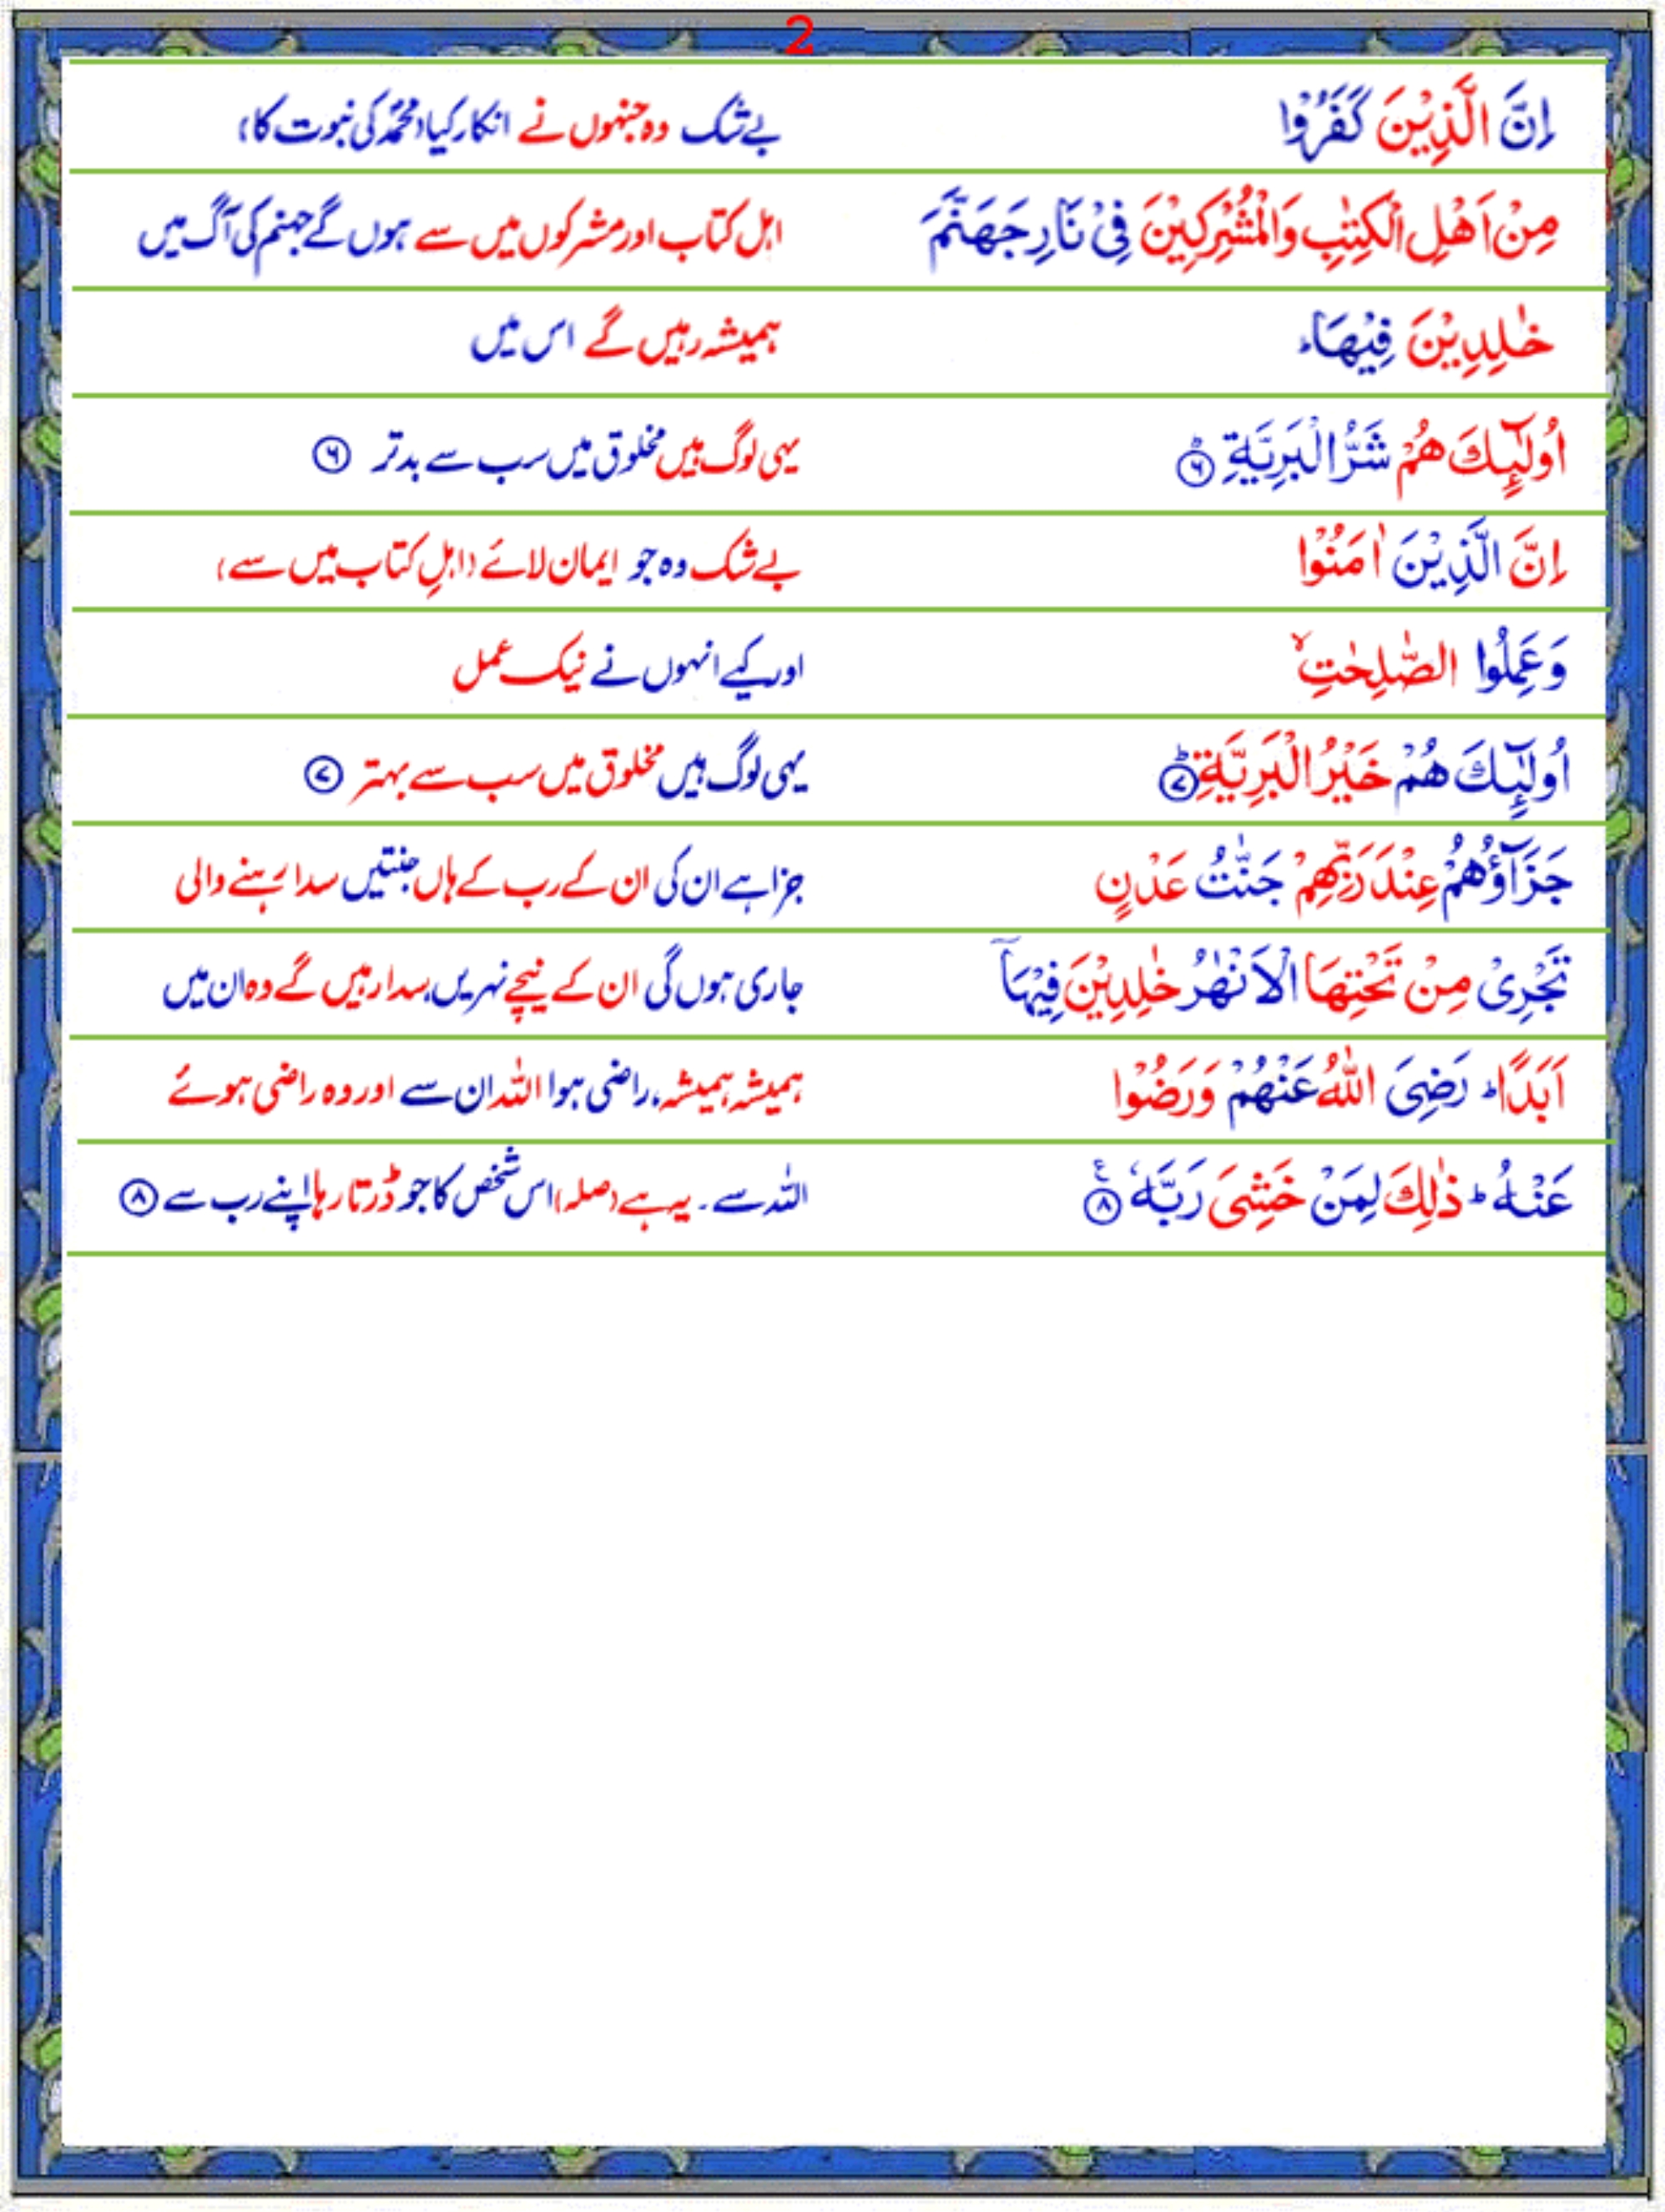 2
اِنَّ الَّذِیْنَ كَفَرُوْا بےشک وہ جنہوں نے انکار کیا (محمدؐ کی نبوت کا)
مِنْ اَهْلِ الْكِتٰبِ وَالْمُشْرِكِیْنَ فِیْ نَارِ جَهَنَّمَ اہل کتاب اور مشرکوں میں سے ہوں گے جہنم کی آگ میں
خٰلِدِیْنَ فِیْهَا ؕ ہمیشہ رہیں گے اس میں
اُولٰٓىِٕكَ هُمْ شَرُّ الْبَرِیَّةِ ۶ؕ یہی لوگ ہیں مخلوق میں سب سے بدتر ۶
اِنَّ الَّذِیْنَ اٰمَنُوْا بےشک وہ جو ایمان لائے (اہلِ کتاب میں سے)
وَعَمِلُوا الصّٰلِحٰتِ ۙ اور کیے انہوں نے نیک عمل
اُولٰٓىِٕكَ هُمْ خَیْرُ الْبَرِیَّةِ ۷ؕ یہی لوگ ہیں مخلوق میں سب سے بہتر ۷
جَزَآؤُهُمْ عِنْدَ رَبِّهِمْ جَنّٰتُ عَدْنٍ جزا ہے ان کی ان کے رب کے ہاں جنتیں سدا رہنے والی
تَجْرِیْ مِنْ تَحْتِهَا الْاَنْهٰرُ خٰلِدِیْنَ فِیْهَاۤ جاری ہوں گی ان کے نیچے نہریں، سدا رہیں گے وہ ان میں
اَبَدًا ؕ رَضِیَ اللّٰهُ عَنْهُمْ وَرَضُوْا ہمیشہ ہمیشہ، راضی ہوا اللہ ان سے اور وہ راضی ہوئے
عَنْهُ ؕ ذٰلِكَ لِمَنْ خَشِیَ رَبَّهٗ ۸۠ اللہ سے۔ یہ ہے (صلہ) اس شخص کا جو ڈرتا رہا اپنے رب سے ۸